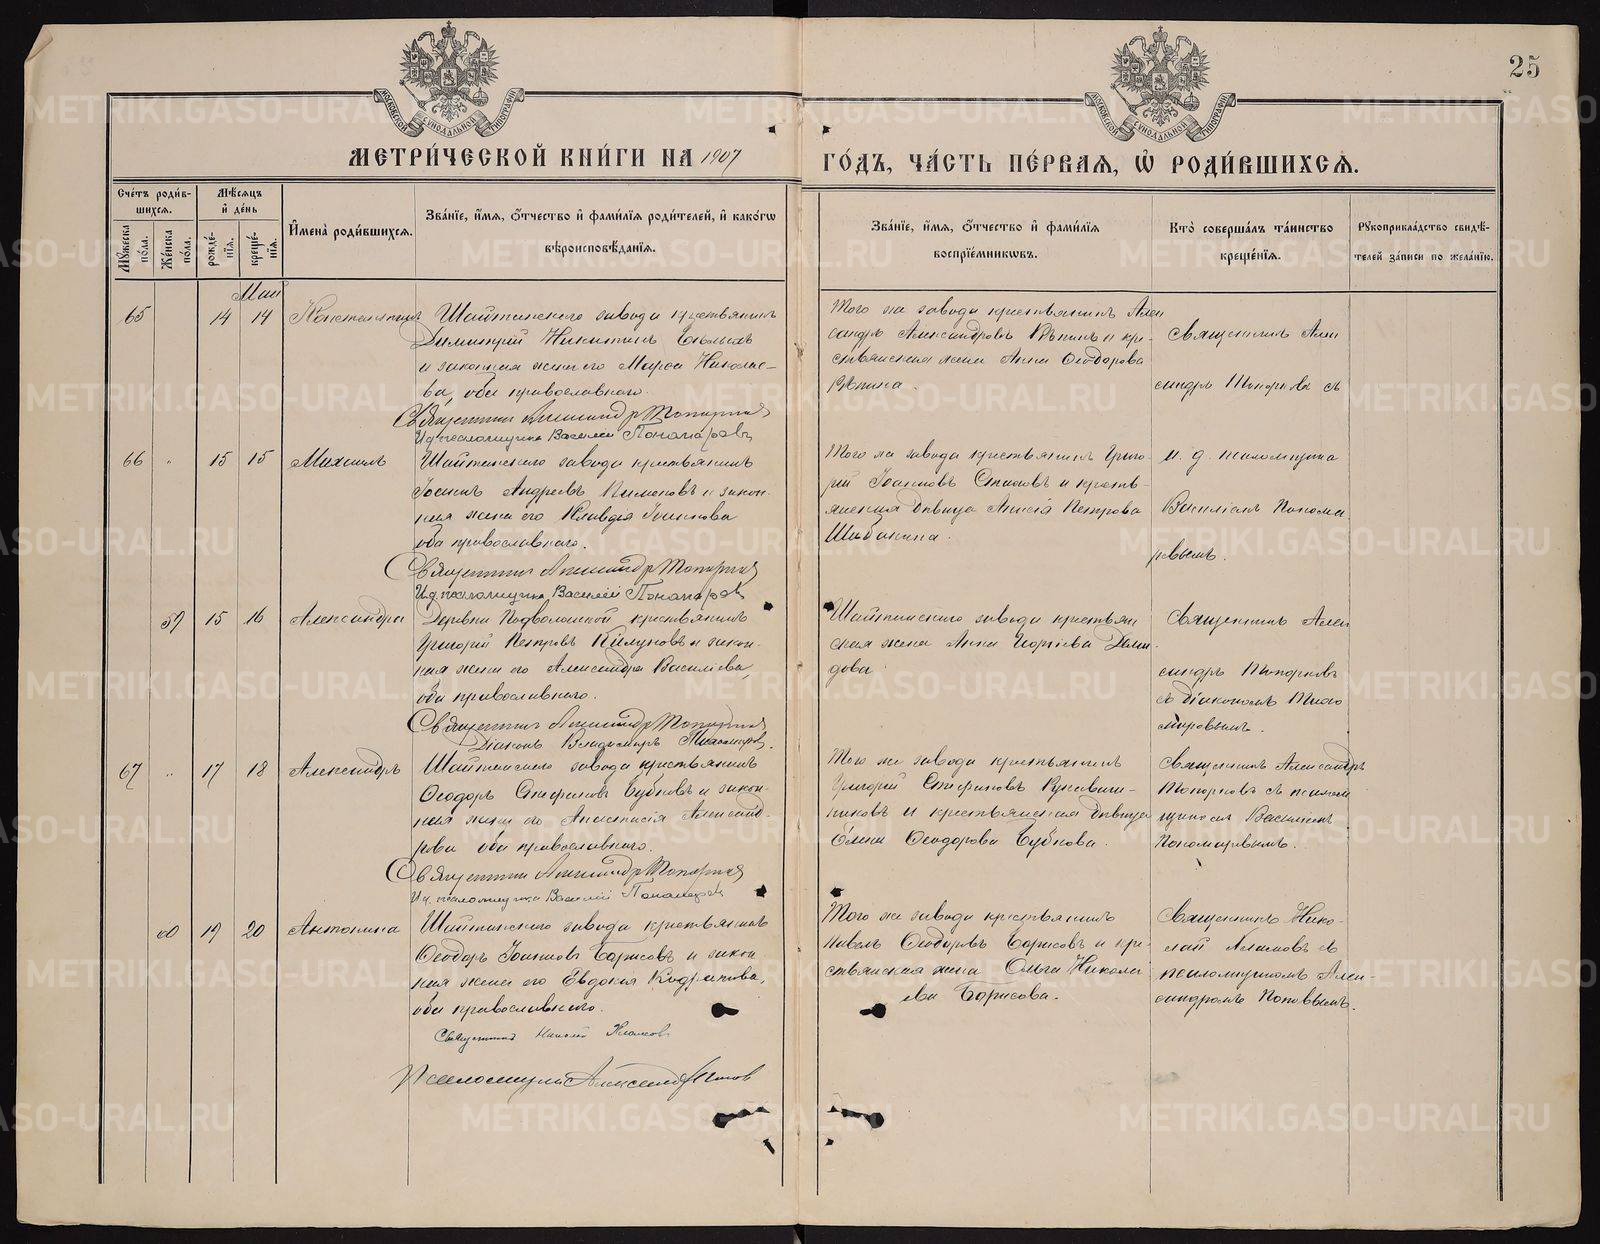 25
МОСКОВСКОЙ СѴНОДАЛЬНОЙ ТИПОГРАФІИ
МОСКОВСКОЙ СѴНОДАЛЬНОЙ ТИПОГРАФІИ
МЕТРИ́ЧЕСКОЙ КНИ́ГИ НА 1907
ГО́ДЪ, ЧА́СТЬ ПЕ́РВАЯ, Ѡ РОДИ́ВШИХСЯ.
Сче́тъ роди́в-
шихся.
Мѣ́сяцъ
и де́нь
Му́жеска по́ла.
Же́нска по́ла.
рожде́-
нїя.
креще́-
нїя.
Имена̀ роди́вшихся.
Зва́нїе, и́мя, о́тчество и фами́лїя роди́телей, и како́гѡ
вѣроисповѣ́данїя.
Зва́нїе, и́мя, о́тчество и фами́лїя
воспрїе́мникѡвъ.
Кто̀ соверша́лъ та́инство
креще́нїя.
Рукоприкла́дство свидѣ́-
телей за́писи по жела́нїю.
Май
65 14 14 Константинъ
Шайтанскаго завода крестьянинъ
Димитрій Никитинъ
и законная жена его Марѳа Николае-
ва, оба православнаго.
Священникъ Александръ Топорковъ
И.д. псаломщика Василій Пономаревъ
Того же завода крестьянинъ Алек
сандръ Александровъ Рѣпинъ и кре-
стьянская жена Анна Ѳеодорова
Рѣпина.
Священникъ Алек
сандръ Топорковъ съ
66 " 15 15 Михаилъ
Шайтанскаго завода крестьянинъ
Іосифъ Андреевъ Пименовъ и закон-
ная жена его Клавдія
оба православнаго.
Священникъ Александръ Топорковъ
И.д. псаломщика Василій Пономаревъ
Того же завода крестьянинъ Григо-
рій Іоанновъ и кресть-
янская дѣвица Анисія Петрова
Шабалина.
и. д. псаломщика
Василіемъ Понома
ревымъ.
59 15 16 Александра
Деревни Подволошной крестьянинъ
Григорій Петровъ и закон-
ная жена его Александра Василіева,
оба православнаго.
Священникъ Александръ Топорковъ
Діаконъ Владимиръ Тихомировъ.
Шайтанскаго завода крестьян
ская жена Анна Георгіева Деми
дова
Священникъ Алек
сандръ Топорковъ
съ діакономъ Тихо
мировымъ.
67 " 17 18 Александръ
Шайтанскаго завода крестьянинъ
Ѳеодоръ Стефановъ Бубновъ и закон-
ная жена его Анастасія Александ-
рова оба православнаго.
Священникъ Александръ Топорковъ
И.д. псаломщика Василій Пономаревъ
Того же завода крестьянинъ
Григорій Стефановъ Рукавиш-
никовъ и крестьянская дѣвица
Елена Ѳеодорова Бубнова.
Священникъ Александръ
Топорковъ съ псалом
щикомъ Василіемъ
Пономаревымъ.
60 19 20 Антонина
Шайтанскаго завода крестьянинъ
Ѳеодоръ Іоанновъ Борисовъ и закон
ная жена его Евдокія Кодратова,
оба православнаго.
Священникъ Николай
Псаломщикъ Александръ Поповъ
Того же завода крестьянинъ
Павелъ Ѳеодоровъ Борисовъ и кре-
стьянская жена Ольга Никола
ева Борисова.
Священникъ Нико-
лай съ
псаломщикомъ Алек-
сандромъ Поповымъ.
METRIKI.GASO-URAL.RU